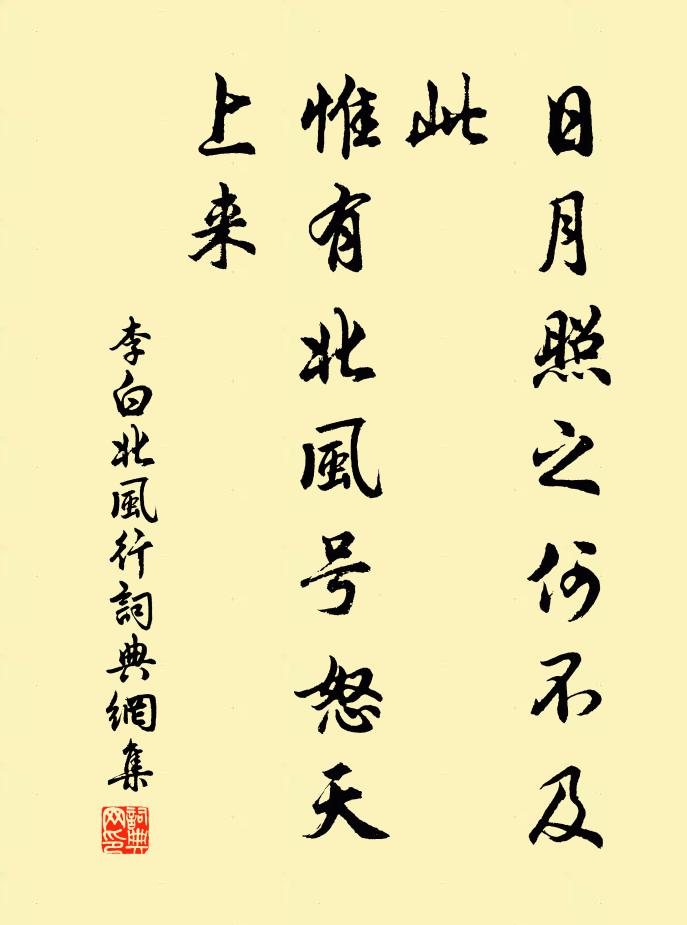 日月照之何不及
此
惟有北風号怒天
上来
李白北風行詞典網集
詞典
网印